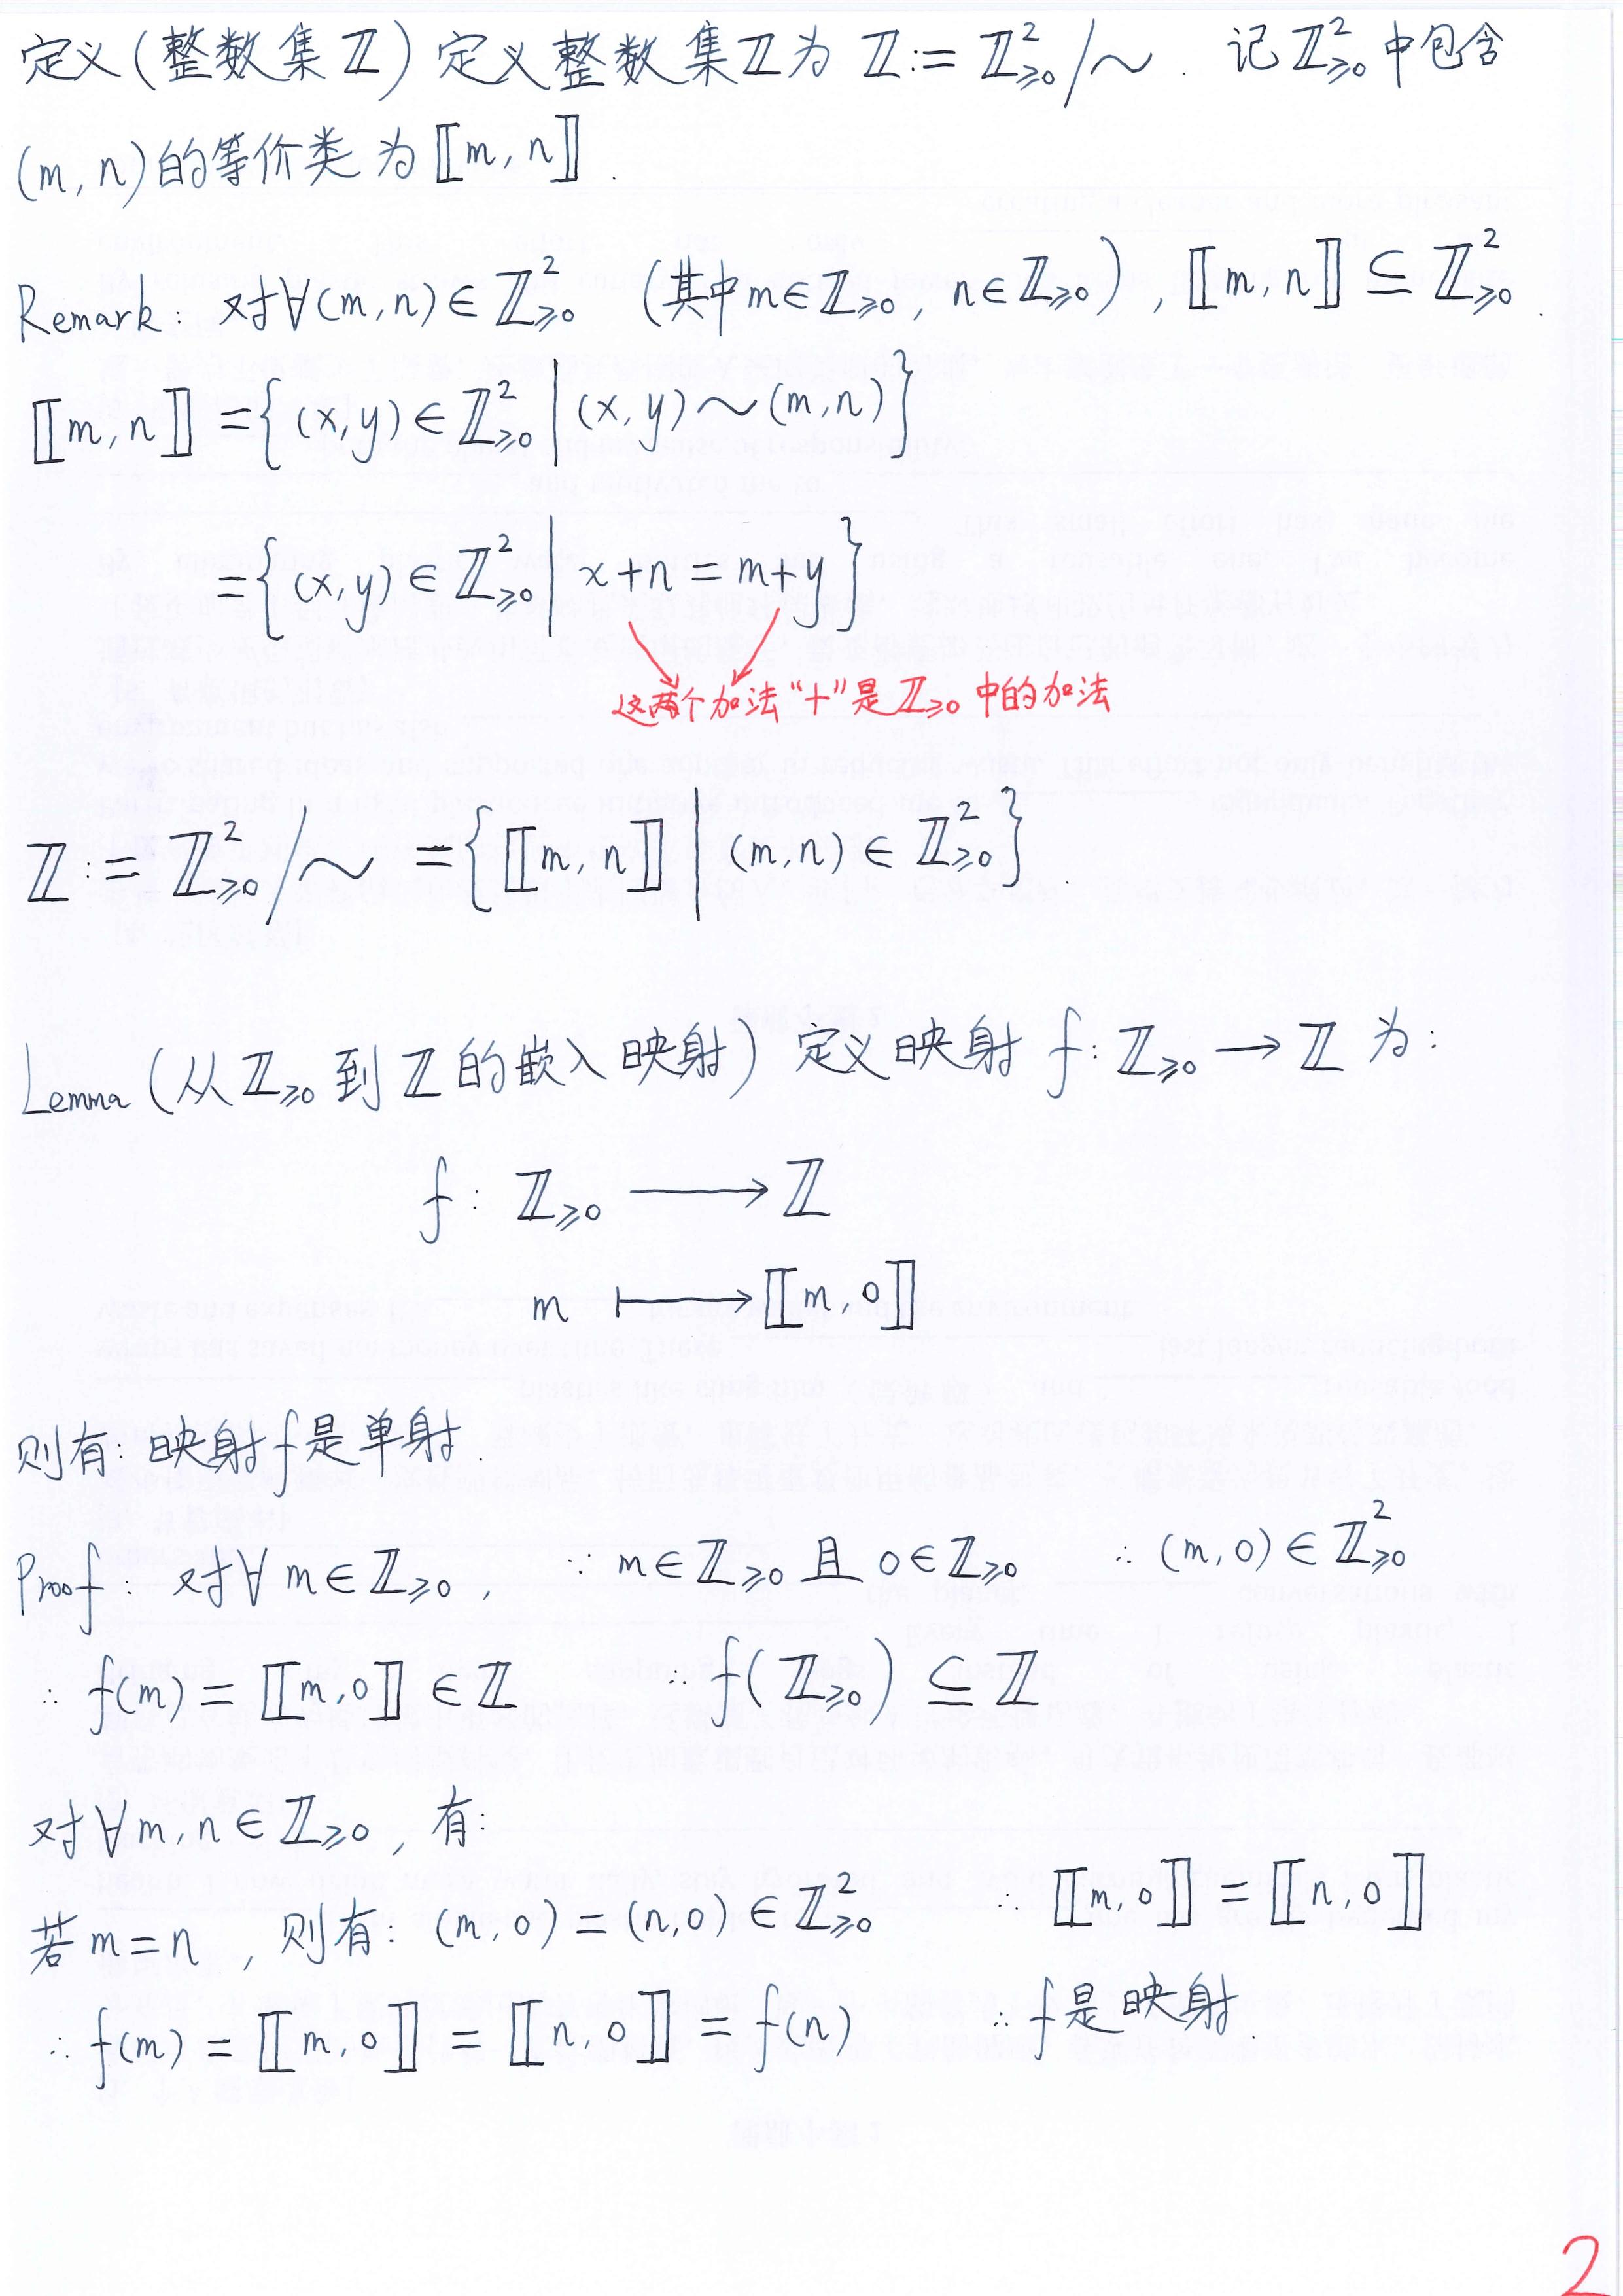 定义(整数集ℤ) 定义整数集ℤ为 ℤ:= ℤ²≥0/∼. 记ℤ²≥0中包含
(m,n)的等价类为⟦m,n⟧.
Remark: 对∀(m,n)∈ℤ²≥0 (其中m∈ℤ≥0, n∈ℤ≥0), ⟦m,n⟧⊆ℤ²≥0.
⟦m,n⟧={(x,y)∈ℤ²≥0|(x,y)∼(m,n)}
={(x,y)∈ℤ²≥0|x+n=m+y}
这两个加法“+”是ℤ≥0中的加法
ℤ:=ℤ²≥0/∼={⟦m,n⟧|(m,n)∈ℤ²≥0}.
Lemma (从ℤ≥0到ℤ的嵌入映射) 定义映射 f: ℤ≥0→ℤ 为:
f: ℤ≥0 ⟶ ℤ
m ⟼ ⟦m,0⟧
则有: 映射f是单射.
Proof: 对∀m∈ℤ≥0, ∵ m∈ℤ≥0 且 0∈ℤ≥0 ∴ (m,0)∈ℤ²≥0
∴ f(m)=⟦m,0⟧∈ℤ ∴ f(ℤ≥0)⊆ℤ
对∀m,n∈ℤ≥0, 有:
若m=n, 则有: (m,0)=(n,0)∈ℤ²≥0 ∴ ⟦m,0⟧=⟦n,0⟧
∴ f(m)=⟦m,0⟧=⟦n,0⟧=f(n) ∴ f是映射.
2